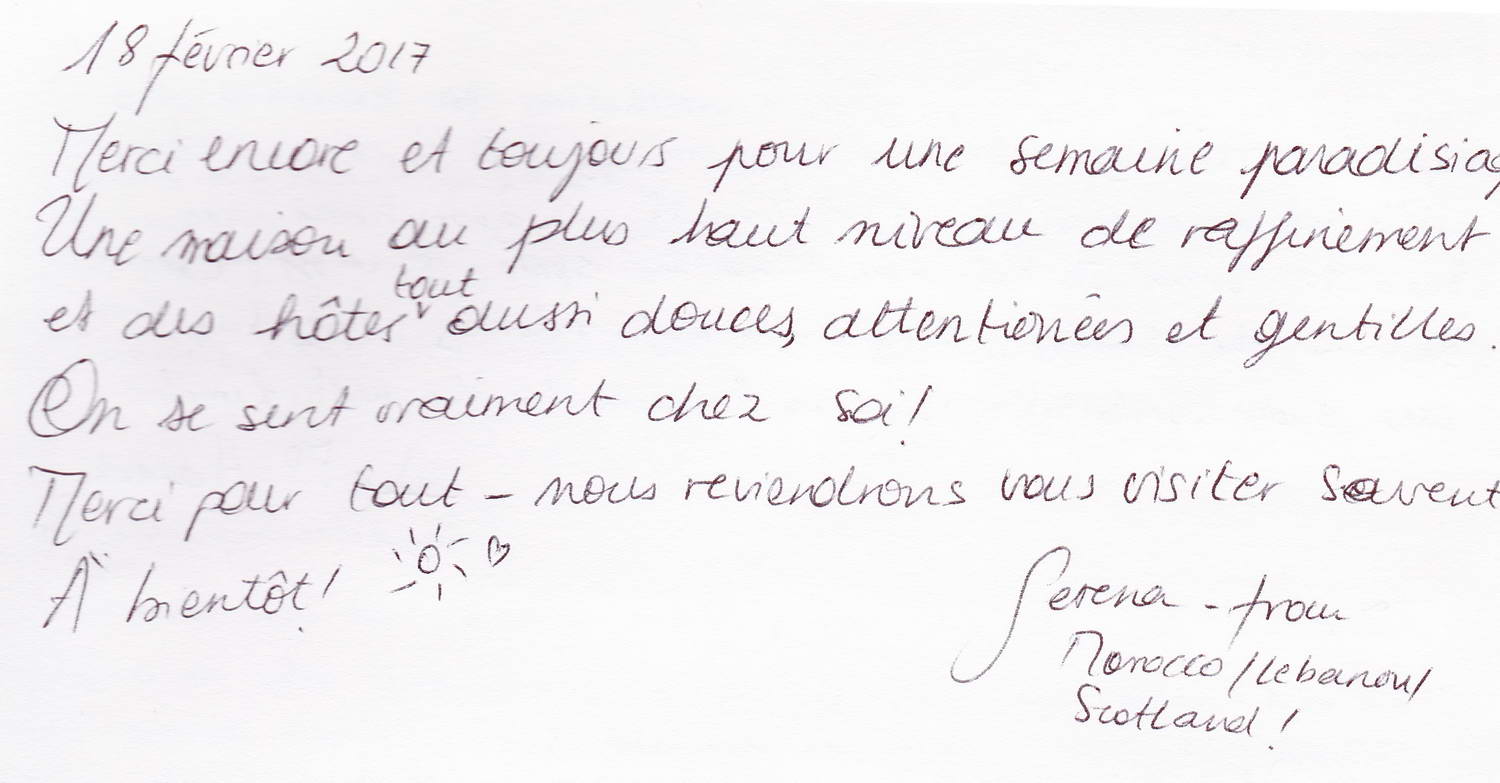 18 février 2017
Merci encore et toujours pour une semaine paradisiaq
Une maison au plus haut niveau de raffinement
et des hôtes tout aussi douces, attentionées et gentilles.
On se sent vraiment chez soi!
Merci pour tout - nous reviendrons vous visiter souvent
À bientôt!
Serena - from
Morocco / Lebanon /
Scotland!